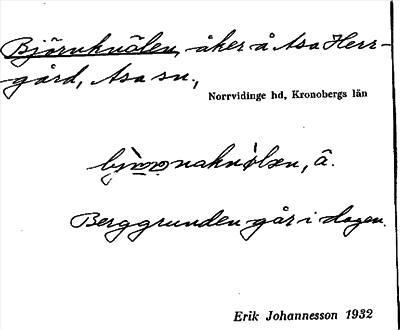 Björnknölen, åker å Asa Herr-
gård, Asa sn.,
Norrvidinge hd, Kronobergs län
å.
Berggrunden går i dagen.
Erik Johannesson 1932